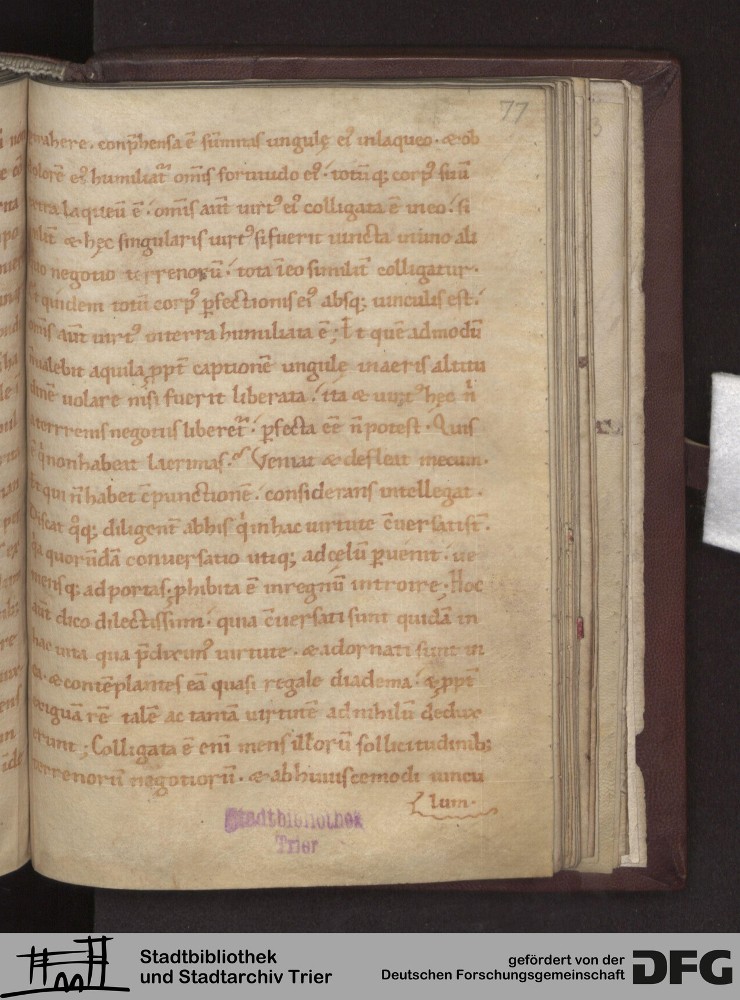 77
trahere. conp̄hensa ē sūmitas ungulę eiꝰ inlaqueo. & ob
dolorē eiꝰ humiliat᷑ om̄is fortitudo eiꝰ. totūq; corpꝰ suū
extra laqueū ē. om̄is aūt uirtꝰ eiꝰ colligata ē ineo. si
milit̄ & hęc singularis uirtꝰ si fuerit uincta inuno ali
quo negotio terrenorū. tota ī eo similit̄ colligatur.
Et quidem totū corpꝰ ꝑfectionis eiꝰ absq; uinculis est.
om̄is aūt uirtꝰ interra humiliata ē; Et quēadmodū
n̄ualebit aquila ꝓpt̄ captionē ungulę inaeris altitu
dinē uolare nisi fuerit liberata. ita & uirtꝰ hęc n̄
a terrenis negotiis liberet᷑. ꝑfecta eē n̄ potest. Quis
ē q̇ nonhabeat lacrimas. Veniat & defleat mecum.
Et qui n̄ habet c̄punctionē. considerans intellegat.
Discat q̄q; diligent̄ abhis q̇ inhac uirtute c̄uersati st̄.
q̄a quorūdā conuersatio utiq; ad celū ꝑuenit. ue
mensq; ad portas; ꝓhibita ē inregnū introire. Hoc
aūt dico dilectissimi. quia c̄uersati sunt quidā in
hac uita qua p̄diximꝰ uirtute. & adornati sunt in
ea. & contēplantes eā quasi regale diadema. & ꝓpt̄
exiguā rē talē ac tantā uirtutē ad nihilū dedux
erunt; Colligata ē enī mens illorū sollicitudinib;
terrenorū negotiorū. & abhuiuscemodi uincu
lum.
Stadtbibliothek
Trier
Stadtbibliothek
und Stadtarchiv Trier
gefördert von der
Deutschen Forschungsgemeinschaft
DFG